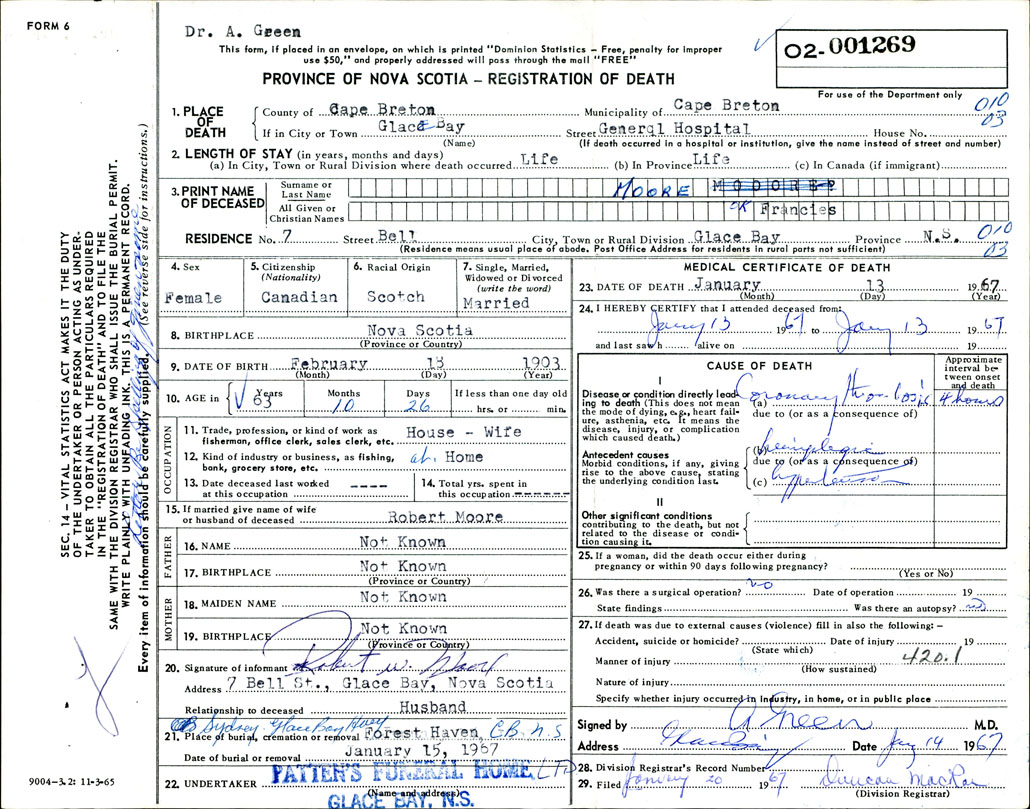 FORM 6
Dr. A. Green
This form, if placed in an envelope, on which is printed "Dominion Statistics – Free, penalty for improper
use $50," and properly addressed will pass through the mail "FREE"
PROVINCE OF NOVA SCOTIA – REGISTRATION OF DEATH
02-001269
For use of the Department only
010
03
1. PLACE OF DEATH
County of Cape Breton Municipality of Cape Breton
If in City or Town Glace Bay Street Generql Hospital House No.
(Name) (If death occurred in a hospital or institution, give the name instead of street and number)
2. LENGTH OF STAY (in years, months and days)
(a) In City, Town or Rural Division where death occurred Life (b) In Province Life (c) In Canada (if immigrant)
3. PRINT NAME OF DECEASED
Surname or Last Name MOORE
All Given or Christian Names OK Francies
RESIDENCE No. 7 Street Bell City, Town or Rural Division Glace Bay Province N.S. 010
03
(Residence means usual place of abode. Post Office Address for residents in rural parts not sufficient)
4. Sex
Female
5. Citizenship
(Nationality)
Canadian
6. Racial Origin
Scotch
7. Single, Married,
Widowed or Divorced
(write the word)
Married
8. BIRTHPLACE Nova Scotia
(Province or Country)
9. DATE OF BIRTH February 18 1903
(Month) (Day) (Year)
10. AGE in Years Months Days If less than one day old
63 10 26 hrs. or min.
OCCUPATION
11. Trade, profession, or kind of work as
fisherman, office clerk, sales clerk, etc. House - Wife
12. Kind of industry or business, as fishing,
bank, grocery store, etc. at. Home
13. Date deceased last worked
at this occupation ----
14. Total yrs. spent in
this occupation ------
15. If married give name of wife
or husband of deceased Robert Moore
FATHER
16. NAME Not Known
17. BIRTHPLACE Not Known
(Province or Country)
MOTHER
18. MAIDEN NAME Not Known
19. BIRTHPLACE Not Known
(Province or Country)
20. Signature of informant Robert W. Moore
Address 7 Bell St., Glace Bay, Nova Scotia
Relationship to deceased Husband
Sydney-Glace Bay Hwy
21. Place of burial, cremation or removal Forest Haven, C.B. N.S.
Date of burial or removal January 15, 1967
22. UNDERTAKER PATTEN'S FUNERAL HOME, LTD
(Name and address)
GLACE BAY, N.S.
MEDICAL CERTIFICATE OF DEATH
23. DATE OF DEATH January 13 1967
(Month) (Day) (Year)
24. I HEREBY CERTIFY that I attended deceased from:
Jany 13 1967 to Jany 13 1967
and last saw h alive on 19
CAUSE OF DEATH
Approximate
interval be-
tween onset
and death
I
Disease or condition directly lead-
ing to death (This does not mean
the mode of dying, e.g., heart fail-
ure, asthenia, etc. It means the
disease, injury, or complication
which caused death.)
(a) Coronary thrombosis 4 hours
due to (or as a consequence of)
Antecedent causes
Morbid conditions, if any, giving
rise to the above cause, stating
the underlying condition last.
(b) hemiplegia
due to (or as a consequence of)
(c) hypertension
II
Other significant conditions
contributing to the death, but not
related to the disease or condi-
tion causing it.
25. If a woman, did the death occur either during
pregnancy or within 90 days following pregnancy?
(Yes or No)
26. Was there a surgical operation? no Date of operation 19
State findings Was there an autopsy? no
27. If death was due to external causes (violence) fill in also the following: –
Accident, suicide or homicide? Date of injury 19
(State which)
Manner of injury 420.1
(How sustained)
Nature of injury
Specify whether injury occurred in industry, in home, or in public place
Signed by A Green M.D.
Address Glace Bay Date Jany 14 1967
28. Division Registrar's Record Number
29. Filed January 20 1967 Duncan MacRae
(Division Registrar)
SEC. 14 – VITAL STATISTICS ACT MAKES IT THE DUTY
OF THE UNDERTAKER OR PERSON ACTING AS UNDER-
TAKER TO OBTAIN ALL THE PARTICULARS REQUIRED
IN THE "REGISTRATION OF DEATH" AND TO FILE THE
SAME WITH THE DIVISION REGISTRAR WHO SHALL ISSUE THE BURIAL PERMIT.
WRITE PLAINLY WITH UNFADING INK. THIS IS A PERMANENT RECORD.
Every item of information should be carefully supplied. (See reverse side for instructions.)
9004-3.2: 11-3-65